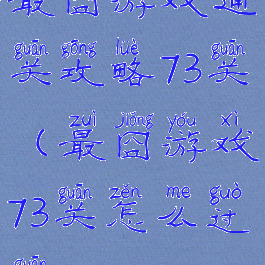 最囧游戏通
guān gōng lüè guān
关攻略73关
zuì jiǒng yóu xì
(最囧游戏
guān zěn me guò
73关怎么过
guān